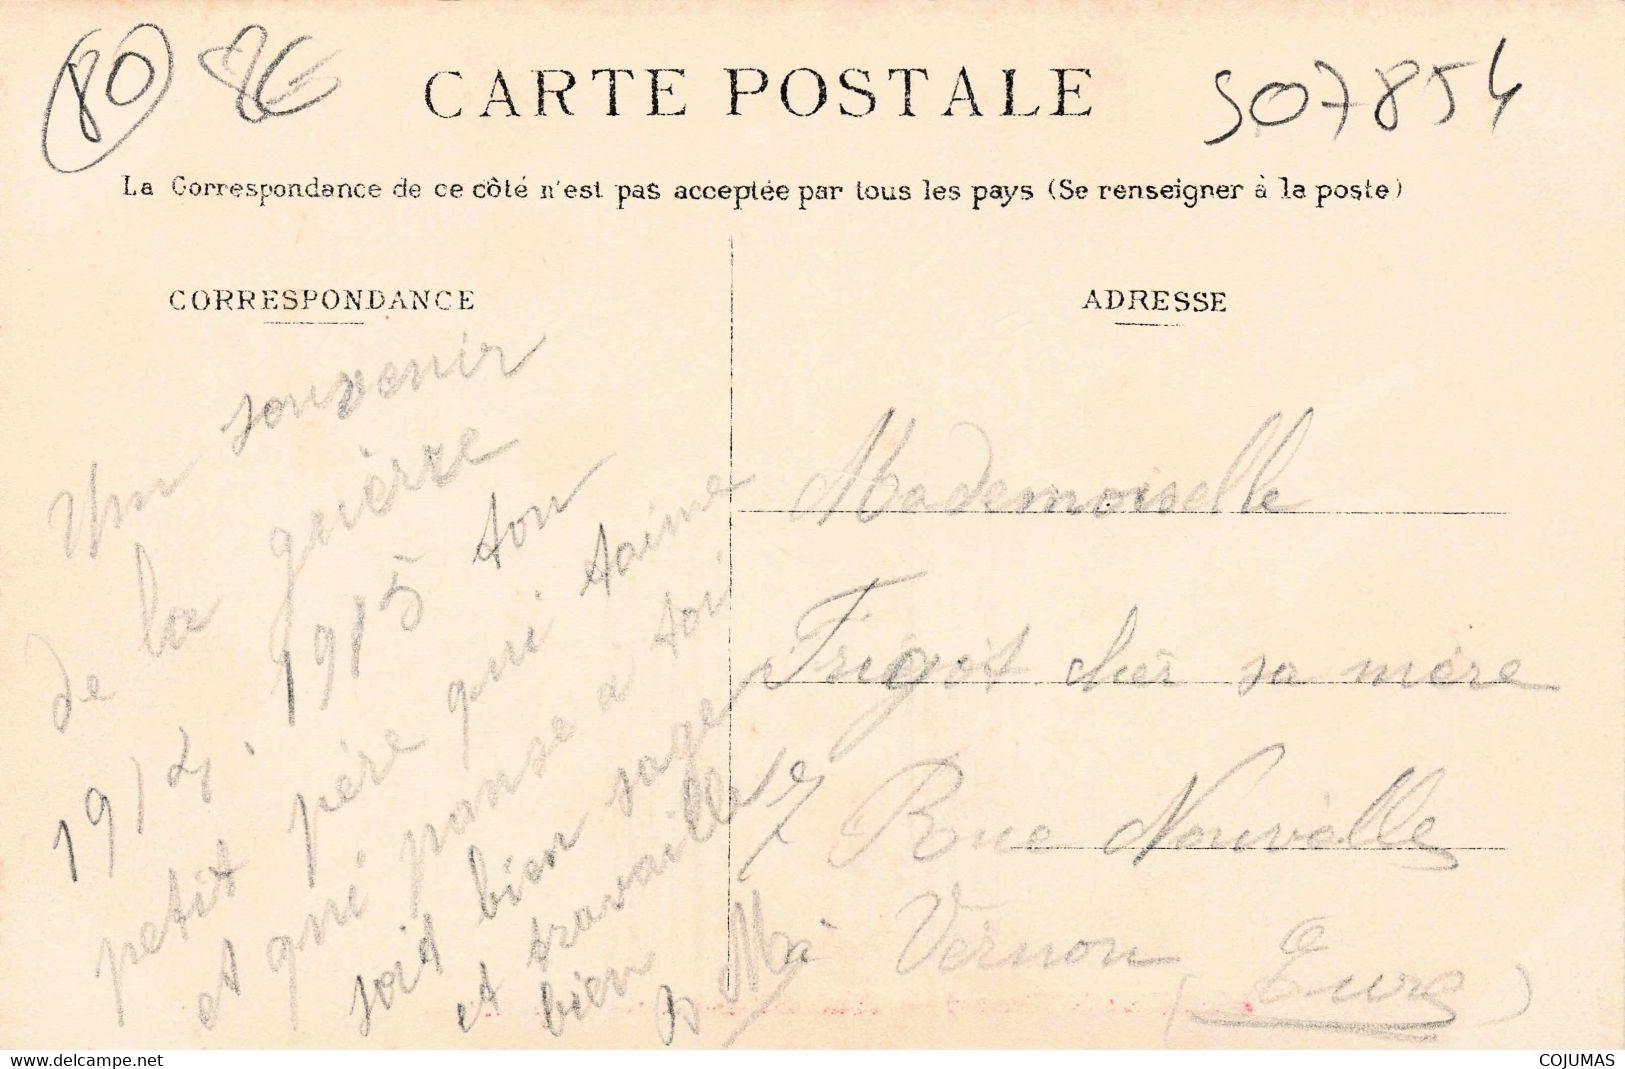 80 8€
CARTE POSTALE
507854
La Correspondance de ce côté n'est pas acceptée par tous les pays (Se renseigner à la poste)
CORRESPONDANCE
Un souvenir
de la guèrre
1914. 1915 ton
petit père qui taime
et qui panse a toi
soit bien sage
et travaille
bien
ADRESSE
Mademoiselle
Frigot cher sa mère
Rue Nouvèlle
à Vernon
(Eure)
www.delcampe.net
COJUMAS